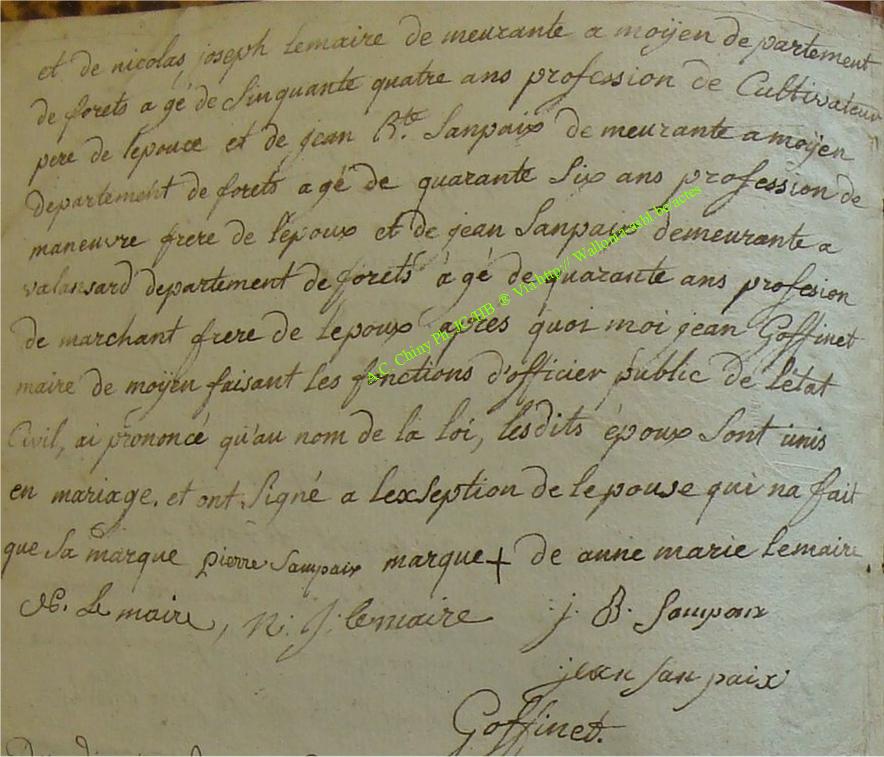 et de nicolas, joseph Lemaire de meurante a moÿen de partement
de forets a gé de Sinquante quatre ans profession de Cultivateur
pere de lepouce et de jean B.te Sanpaix de meurante a moÿen
departement de forets a gé de quarante Six ans profession de
maneuvre frere de l'epoux et de jean Sanpaix demeurante a
valansard departement de forets a gé de quarante ans profesion
de marchant frere de lepoux apres quoi moi jean Goffinet
maire de moÿen faisant les fonctions d'officier public de l'état
Civil, ai prononcé qu'au nom de la loi, lesdits époux Sont unis
en mariage. et ont Signé a lexseption de lepouse qui na fait
que Sa marque pierre Sampaix marque + de anne marie lemaire
Lemaire, N: J: lemaire j. B. Sampaix
jean San paix
Goffinet.
A.C. Chiny Ph.JC/HB ® Via http// Wallonia asbl be actes